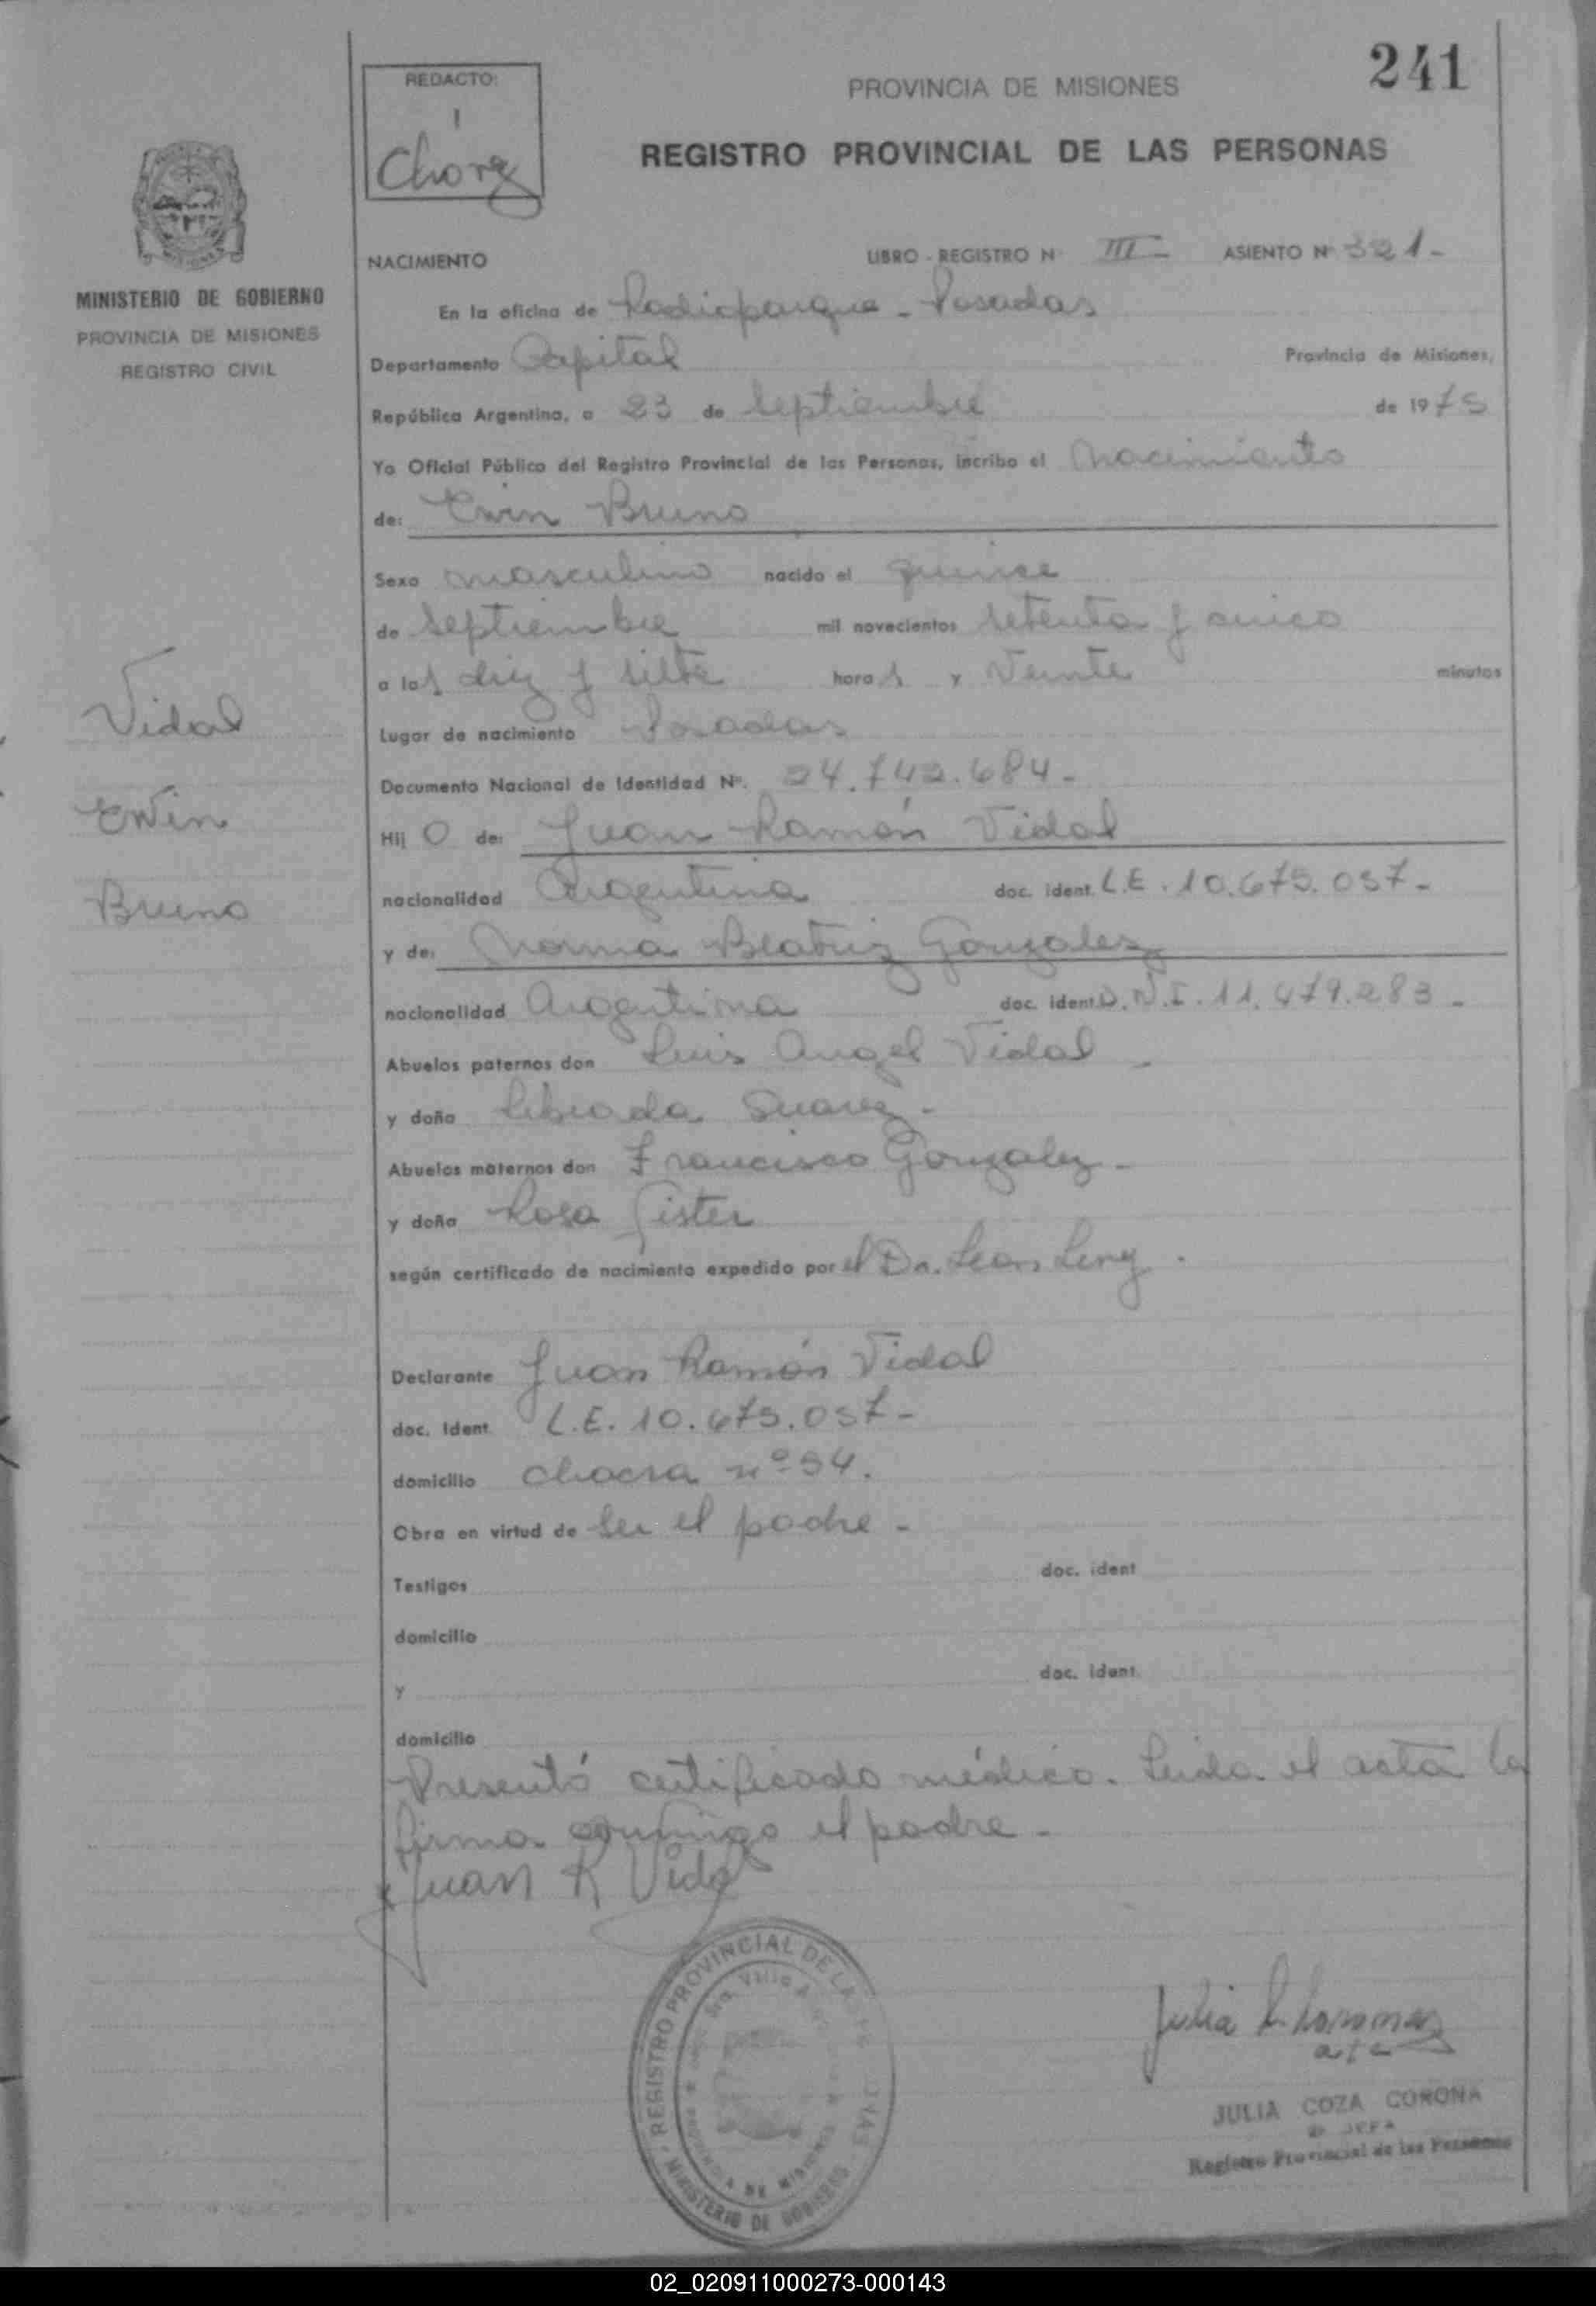 241
REDACTO:
PROVINCIA DE MISIONES
REGISTRO PROVINCIAL DE LAS PERSONAS
MINISTERIO DE GOBIERNO
PROVINCIA DE MISIONES
REGISTRO CIVIL
NACIMIENTO LIBRO - REGISTRO Nº III - ASIENTO Nº 321-
En la oficina de Radioparque - Posadas
Departamento Capital Provincia de Misiones,
República Argentina, a 23 de Septiembre de 1975
Yo Oficial Público del Registro Provincial de las Personas, incribo el Nacimiento
de: Erwin Bruno
Sexo masculino nacido el quince
de Septiembre mil novecientos setenta y cinco
a las diez y siete horas y veinte minutos
Vidal
Erwin
Bruno
Lugar de nacimiento Posadas
Documento Nacional de Identidad Nº. 24.742.684-
Hij o de: Juan Ramón Vidal
nacionalidad Argentina doc. ident. L.E. 10.675.057-
y de: Norma Beatriz Gonzalez
nacionalidad Argentina doc. ident. D.N.I. 11.479.283-
Abuelos paternos don Luis Angel Vidal -
y doña Librada Suarez-
Abuelos maternos don Francisco Gonzalez-
y doña Rosa
según certificado de nacimiento expedido por el Dr. Leon
Declarante Juan Ramón Vidal
doc. Ident L.E. 10.675.057-
domicilio chacra nº 54.
Obra en virtud de ser el padre-
Testigos doc. ident
domicilio
y doc. ident.
domicilio
Presentó certificado médico. Leida el acta la
firma conmigo el padre-
Juan R Vidal
REGISTRO PROVINCIAL DE LAS PERSONAS
MINISTERIO DE GOBIERNO
PROVINCIA DE MISIONES
Julia
JULIA COZA CORONA
Registro Provincial de las Personas
02_020911000273-000143